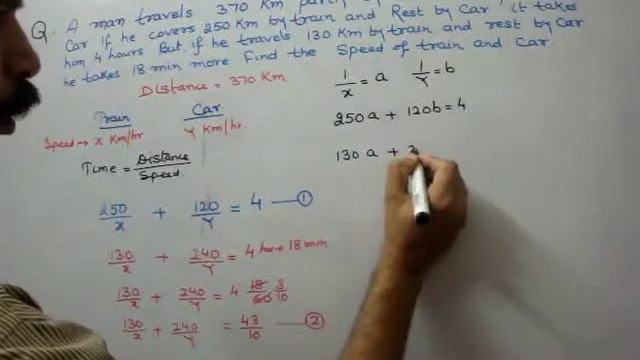 Q. A man travels 370 Km partly by
Car If he covers 250 Km by train and Rest by Car it takes
him 4 hours But if he travels 130 Km by train and rest by Car
he takes 18 min more Find the Speed of train and Car.
Distance = 370 Km
Train Car
Speed → x Km/hr Y Km/hr.
Time = Distance/Speed.
250/x + 120/Y = 4 —①
130/x + 240/Y = 4 hr + 18 min
130/x + 240/Y = 4 18/60 3/10
130/x + 240/Y = 43/10 —②
1/x = a 1/Y = b
250a + 120b = 4
130a +